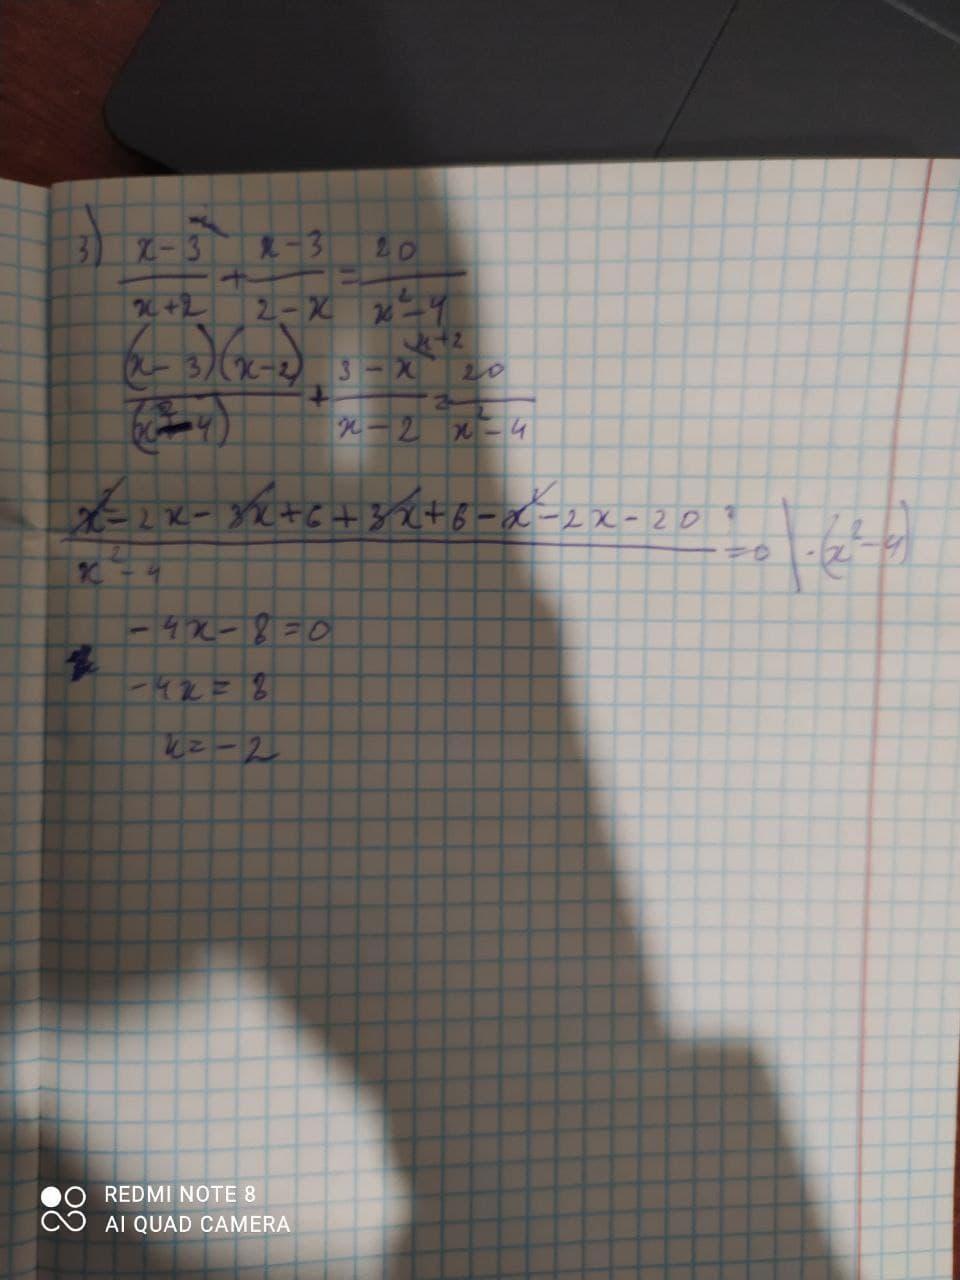 3) (x-3)/(x+2) + (x-3)/(2-x) = 20/(x²-4)
x+2
(x-3)(x-2)/(x²-4) + (3-x)/(x-2) = 20/(x²-4)
(x²-2x-3x+6+3x+6-x²-2x-20)/(x²-4) = 0 | ·(x²-4)
-4x-8=0
-4x=8
x=-2
REDMI NOTE 8
AI QUAD CAMERA